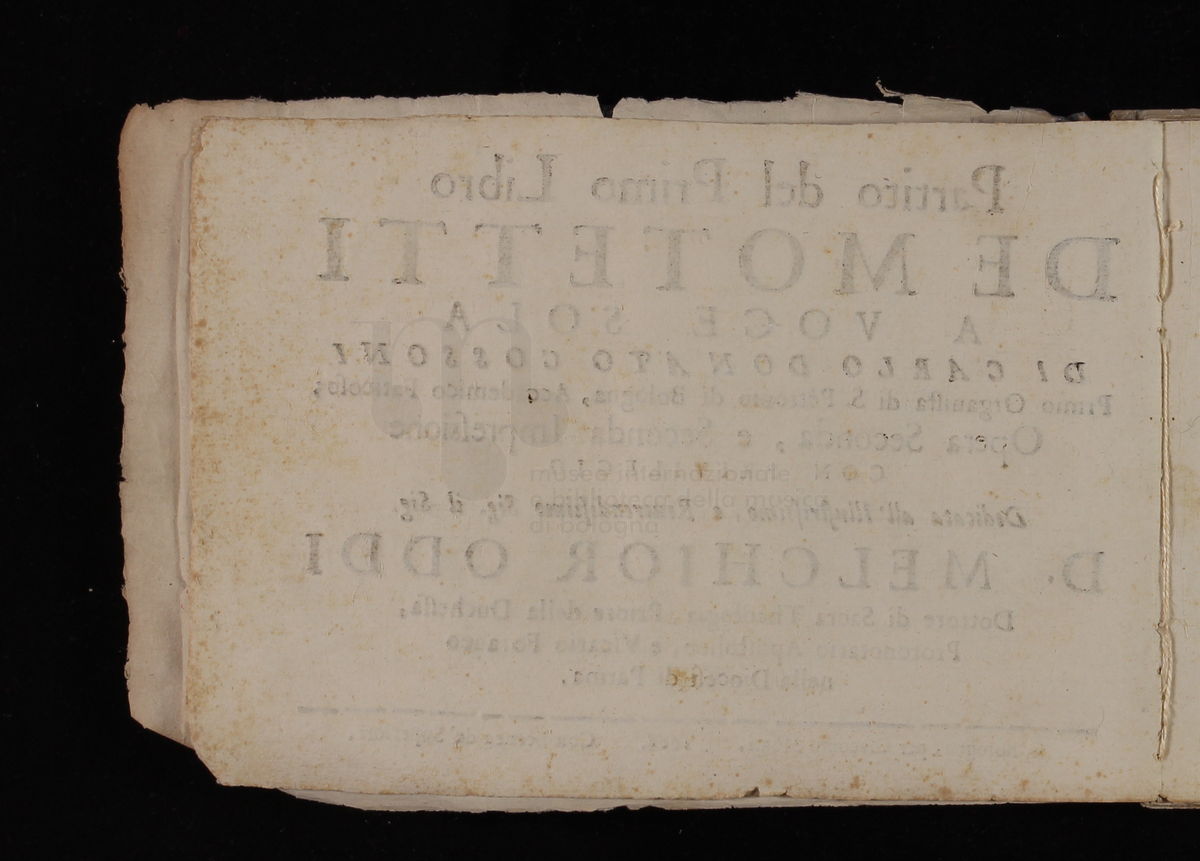 Partito del Primo Libro
DE MOTETTI
A VOCE SOLA
DI CARLO DONATO COSSONI
Primo Organista di S. Petronio di Bologna, Accademico Faticoso;
Opera Seconda, e Seconda Impressione
CON
Dedicata all' Illustrissimo, e Reverendissimo Sig. il Sig.
D. MELCHIOR ODDI
Dottore di Sacra Theologia, Priore della Duchessa,
Protonotario Apostolico, e Vicario Foraneo
nella Diocesi di Parma.
Con licenza de' Superiori.
museo internazionale
e biblioteca della musica
di bologna